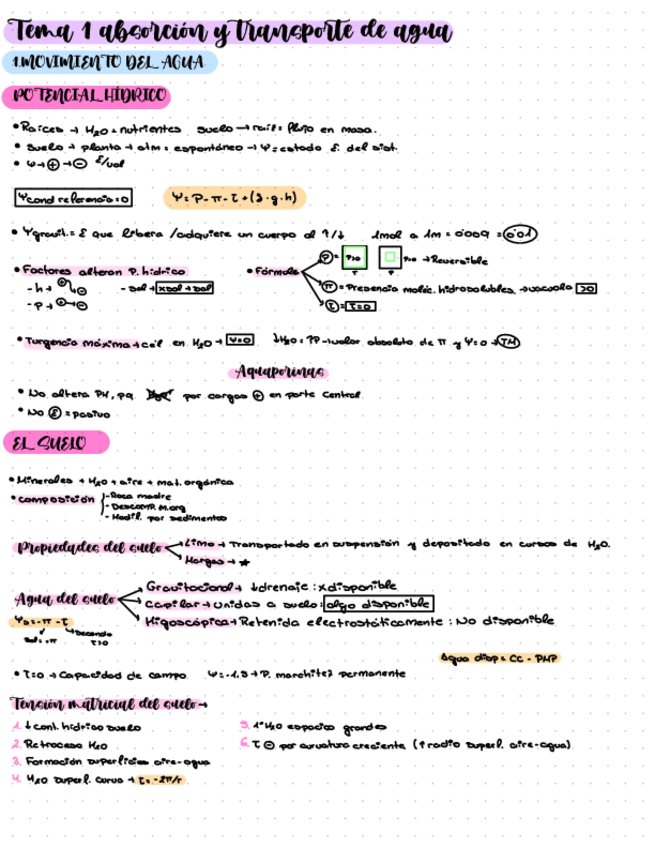 Tema 1 absorción y transporte de agua
1.MOVIMIENTO DEL AGUA
POTENCIAL HÍDRICO
• Raíces → H2O + nutrientes suelo → raíz = flujo en masa.
• Suelo → planta → atm = espontáneo → Ψ = estado E. del sist.
• Ψ → + → - E/vol
Ψ cond referencia = 0 Ψ = P - π - τ + (ρ · g · h)
• Ψ gravit. = E que libera / adquiere un cuerpo al ↑/↓ 1mol a 1m = 0'009 = 0'01
P = P>0 P=0 → Reversible
• Factores alteran P. hídrico • Fórmula
π = Presencia moléc. hidrosolubles. → vacuola >0
- h → + → - - sol → xsol → sol
- P → + → - τ = τ=0
• Turgencia máxima → cél en H2O → Ψ=0 ↓H2O = ↑P → valor absoluto de π y Ψ=0 → TM
Aquaporinas
• No altera PH, pq por cargas + en parte central
• No E = pasivo
EL SUELO
• Minerales + H2O + aire + mat. orgánica
• Composición - Roca madre
- Descomp. M.org
- Modif. por sedimentos
Propiedades del suelo Limo → Transportado en suspensión y depositado en cursos de H2O.
Margas → ★
Gravitacional → ↓drenaje : x disponible
Agua del suelo Capilar → unidas a suelo : algo disponible
Ψs = -π - τ Higoscópica → Retenida electrostáticamente : No disponible
Sal = +π Secando τ>0
Agua disp = CC - PMP
• τ=0 → Capacidad de campo Ψ = -1,5 → P. marchitez permanente
Tensión matricial del suelo →
1. ↓ cont. hídrico suelo 5. 1º H2O espacios grandes
2. Retroceso H2O 6. τ - por curvatura creciente (↑ radio superf. aire-agua)
3. Formación superficies aire-agua
4. H2O superf. curva → τ = -2π/r